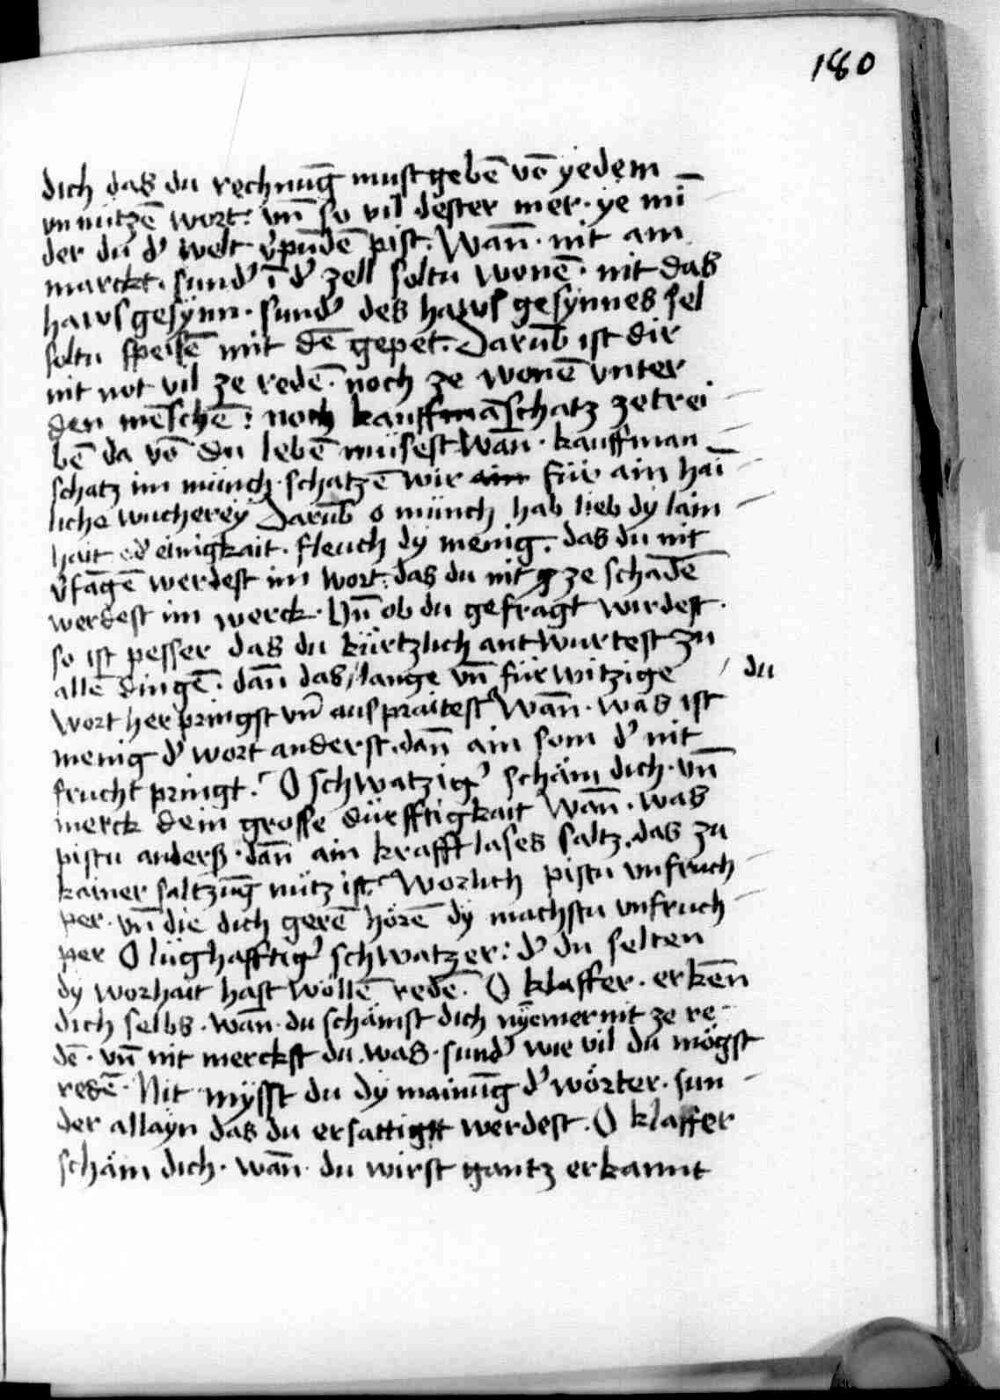 180
dich das du rechnūg must gebē vō yedem
vnnützē wort: vn̄ so vil dester mer · ye mī
der du d' welt v'pūdē pist. Wan̄ · nit am
marckt · sund' ī d' zell soltu wonē · nit das
hawsgesynn · sund' des hawsgesynnes sel
soltu speisē mit dē gepet. Darūb ist dir
nit not vil ze redē · noch ze wonē vnter
den mēschē: noch kauffmāschatz zetrei
bē da vō du lebē müsest Wan̄ · kauffman
schatz im münch · schatzē wir ain für ain hai
liche wucherey Darūb o münch hab lieb dy lain
hait od' einigkait · fleuch dy menig. das du nit
v'fāgē werdest im wort. das du nit ze schadē
werdest im werck · Vn̄ ob du gefragt wirdest ·
so ist pesser das du kürtzlich antwurtest zu
allē dingē · dan̄ das lange vn̄ fürwitzige du
wort her pringst vn̄ auspraitest Wan̄ · was ist
menig d' wort anderst · dan̄ ain som d' nit
frucht pringt. O schwatzig' schäm dich · vn̄
merck dein grosse dürfftigkait Wan̄ · was
pistu anderß · dan̄ ain krafftlases saltz. das zu
kainer saltzūg nütz ist. Worlich pistu vnfruch
per · vn̄ die dich gerē hörē dy machstu vnfruch
per O lüghafftig' schwatzer: d' du selten
dy worhait hast wöllē redē. O klaffer · erkēn
dich selbs · wan̄ · du schämst dich nyemer nit ze re
dē · vn̄ nit merckst du was · sund' wie vil du mögst
redē · Nit mysst du dy mainūg d' wörter · sun
der allayn das du ersattigt werdest · O klaffer
schäm dich · wan̄ · du wirst gantz erkannt